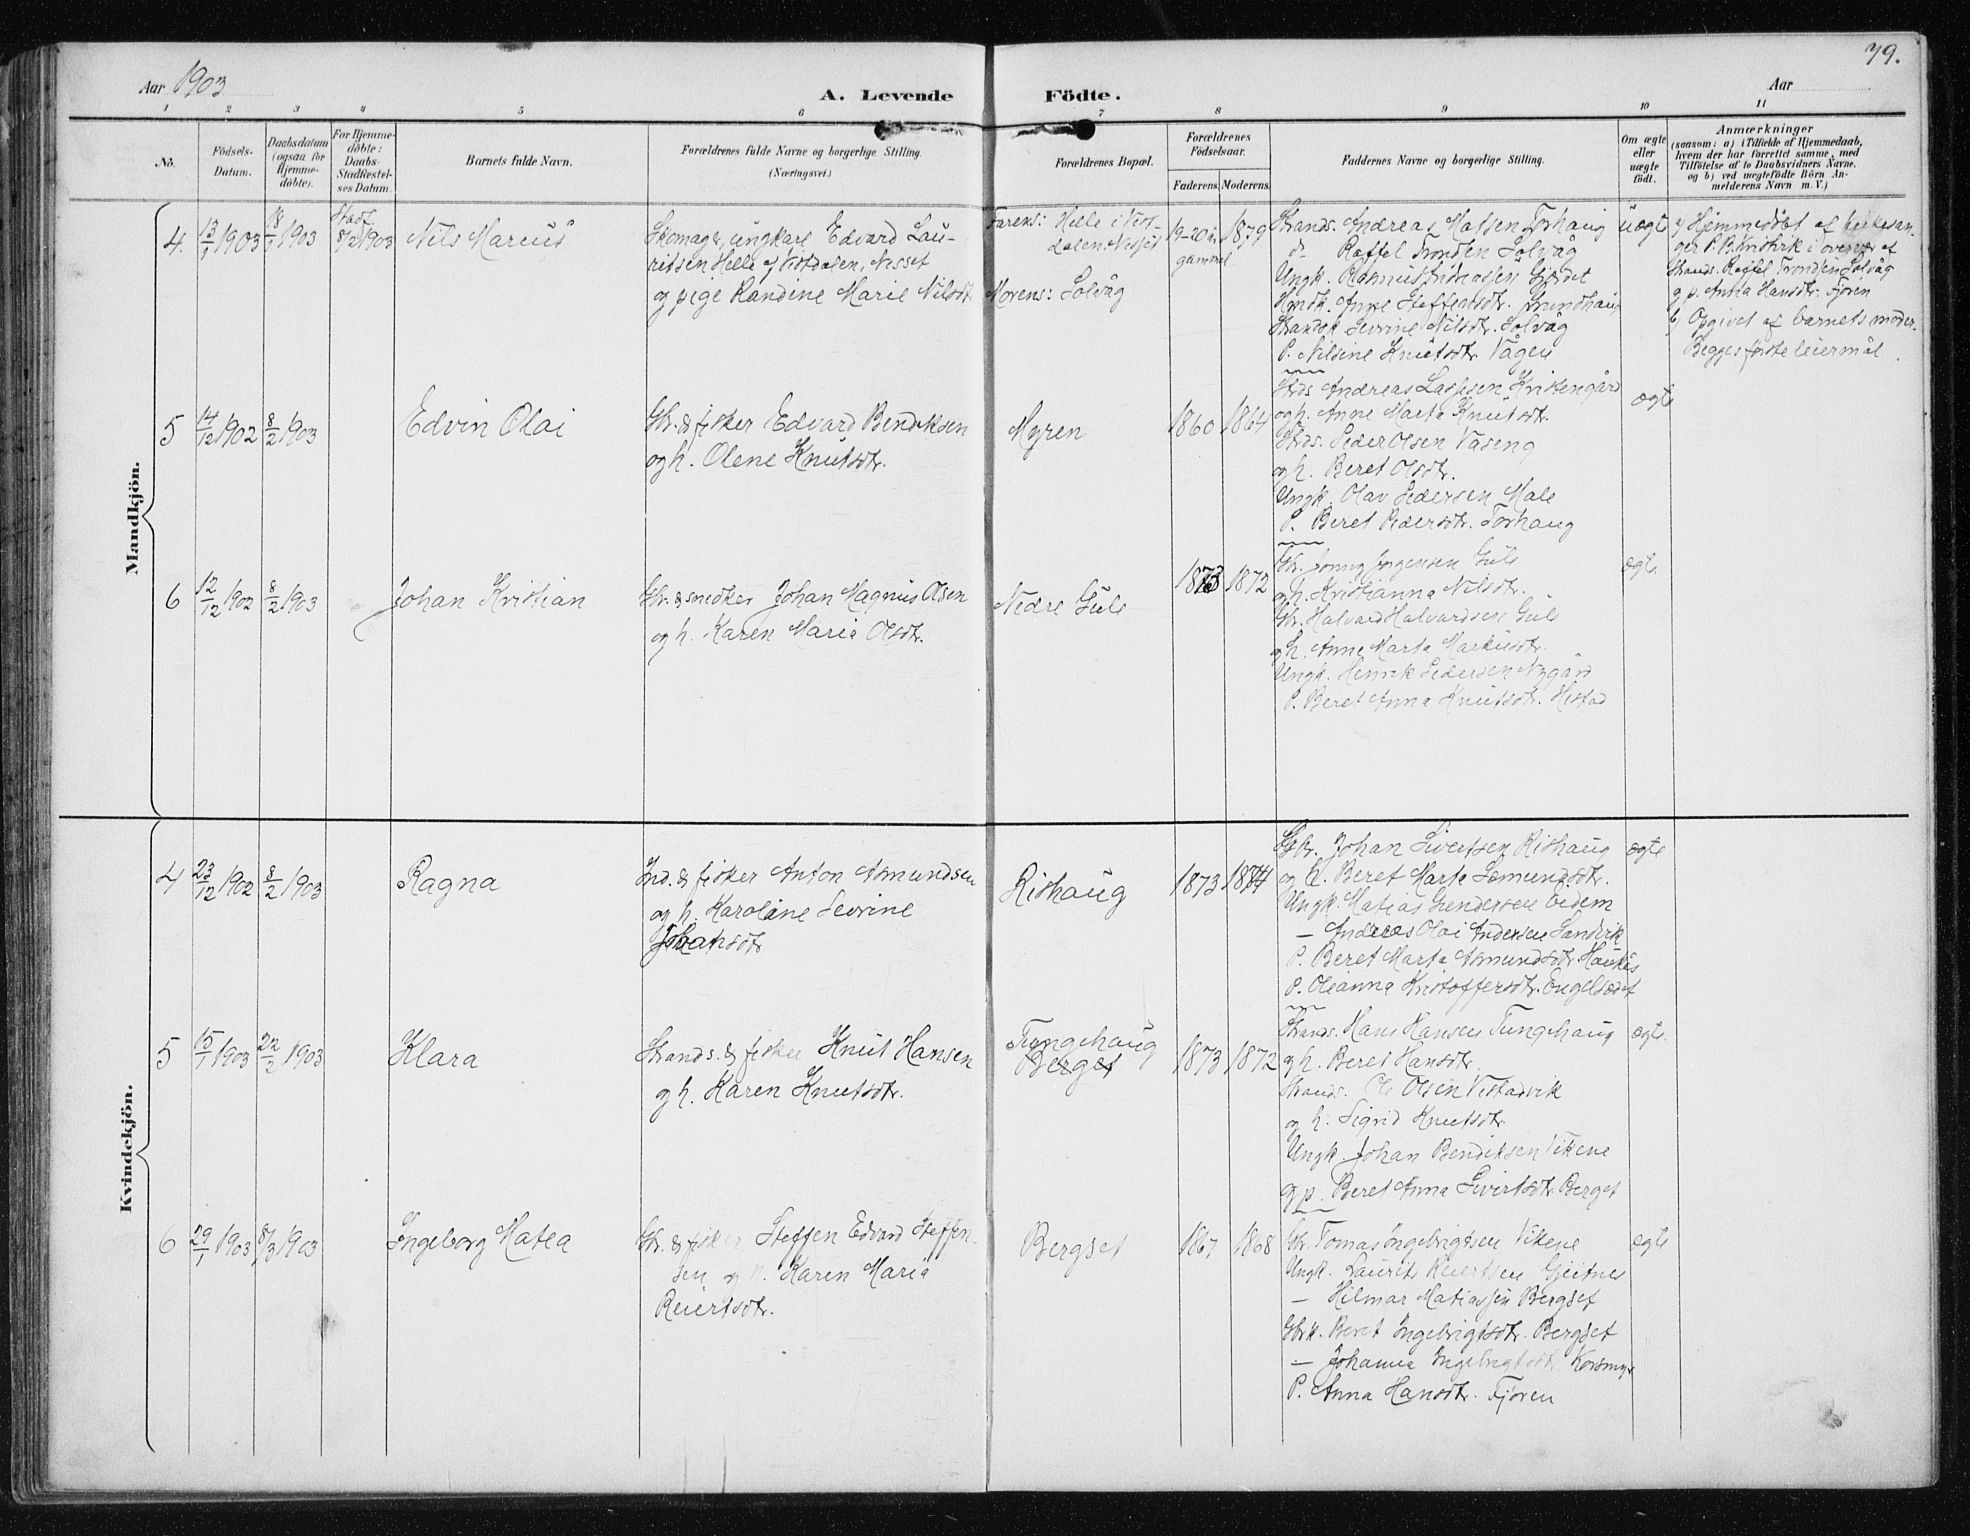 79.
Aar 1903
A. Levende Födte.
Aar
1 2 3 4 5 6 7 8 9 10 11
No.
Födsels-Datum.
Daabsdatum (ogsaa for Hjemme-döbte).
For Hjemme-döbte: Daabs-Stadfæstel-ses Datum.
Barnets fulde Navn.
Forældrenes fulde Navne og borgerlige Stilling.
(Næringsvei.)
Forældrenes Bopæl.
Forældrenes Födselsaar.
Faderens. Moderens.
Faddernes Navne og borgerlige Stilling.
Om ægte eller uægte födt.
Anmærkninger
(saasom: a) i Tilfælde af Hjemmedaab,
hvem der har forrettet samme, med
Tilföielse af to Daabsvidners Navne.
og b) ved uægtefödte Börn An-
melderens Navn m. V.)
Mandkjön.
4. 13/1 1903 18/1 1903 Stadf. 8/2 1903
Nils Marius
Skomager, ungkarl Edvard Lau-
ritsen Helle af Vistdalen, Nesset
og pige Randine Marie Nilsdt.
Farens: Helle i Vist-
dalen, Nesset
Morens: Solvåg
19-20 år gammel 1879
Strands. Andreas Matsen Torhaug
do Roffel Trondsen Solvåg
Ungk. Rasmus
P. Nilsine Knutsdtr. Vågen
uægt
a) Hjemmedöbt af kirkesan-
ger i overvær af
Strands. Roffel Trondsen Solvåg
og p. Anna Hansdtr. Fjören
b) Opgivet af barnets moder.
Begges förste leiermål.
5 14/12 1902 8/2 1903
Edvin Olai
Gbr. & fisker Edvard Bendiksen
og h. Olene Knutsdtr.
Myren
1860 1864
Gbds. Andreas Lassesen Kristengård
og h. Anne Marta Knutsdtr.
Strds. Peder Olsen Vaseng
og h. Beret Olsdtr.
Ungk. Olav Pedersen Male
P. Beret Pedersdtr. Torhaug
ægte
6 12/12 1902 8/2 1903
Johan Kristian
Gbr. & snedker Johan Magnus Olsen
og h. Karen Maria Olsdtr.
Nedre Gule
1873 1872
Gbr. Jonny Jörgensen Gule
og h. Kristianna Nilsdtr.
Gbr. Halvard Halvardsen Gule
og h. Anne Marta Markusdtr.
Ungk. Henrik Pedersen Nygård
P. Beret Anna Knutsdtr. Histad
ægte
Kvindekjön.
4 23/12 1902 8/2 1903
Ragna
Ind. & fisker Anton Asmundsen
og h. Karoline Sevrine
Johansdtr.
Rishaug
1873 1874
Gbr. Johan Sivertsen Rishaug
og h. Beret Marta Sæmundsdtr.
Ungk. Matias Gundersen
— Andreas Olai Andersen Sandvik
P. Beret Marta Asmundsdtr. Haukås
P. Olianna Kristoffersdtr. Engelsædet
ægte
5 15/1 1903 22/2 1903
Klara
Strands. & fisker Knut Hansen
og h. Karen Knutsdtr.
Tungehaug
Berget
1873 1872
Strands. Hans Hansen Tungehaug
og h. Beret Hansdtr.
Strands. Ole Olsen Vestadvik
og h. Sigrid Knutsdtr.
Ungk. Johan Bendiksen Vikene
og p. Beret Anna Sivertsdtr. Berget
ægte.
6 29/1 1903 8/3 1903
Ingeborg Matea
Gbr. & fisker Steffen Edvard Steffen-
sen og h. Karen Maria
Reiertsdtr.
Bergset
1867 1868
Gbr. Tomas Ingebrigtsen Vikene
Ungk. Laurits Reiertsen Gjeitnes
— Hilmar Matiassen Bergset
Gbrk. Beret Ingebrigtsdtr. Bergset
— Johanna Ingebrigtsdtr. Korsmyr
P. Anna Hansdtr. Fjören
ægte